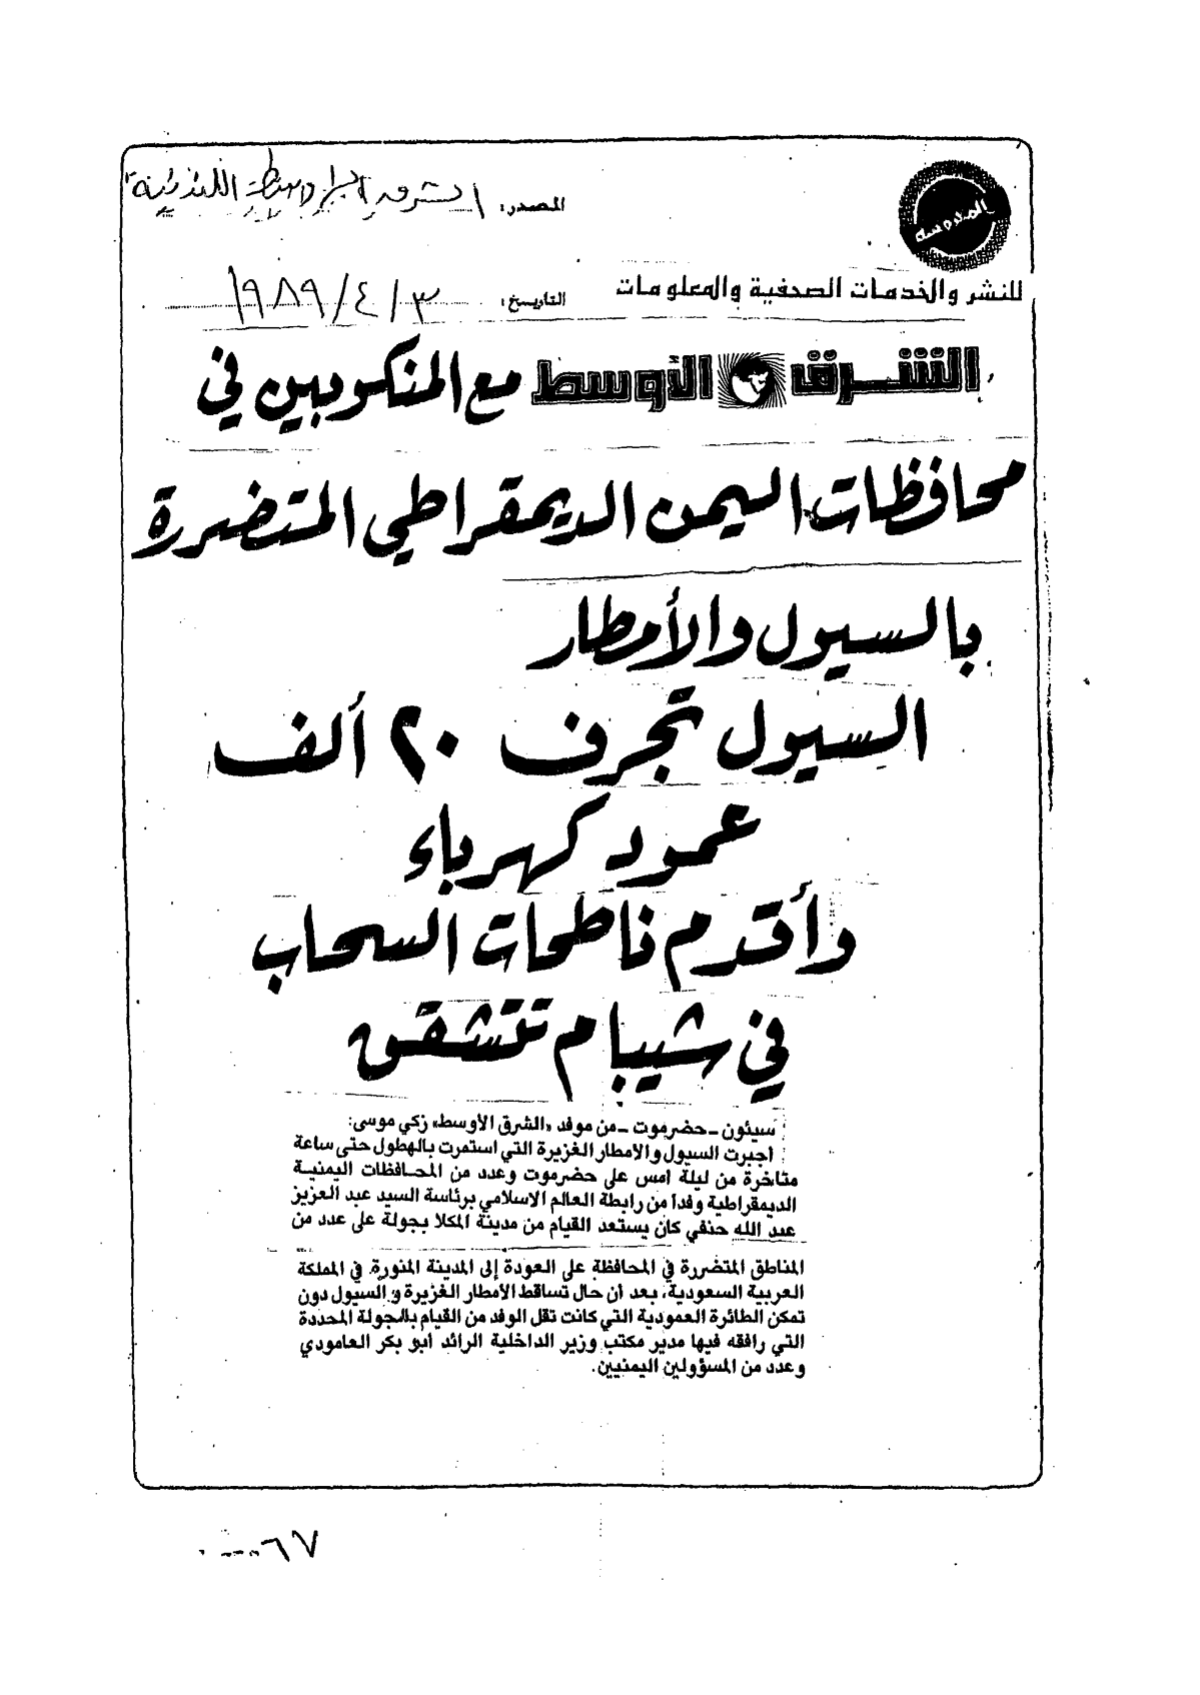 المدوسة
للنشر والخدمات الصحفية والمعلومات
المصدر: الشرق الاوسط اللندنية
التاريخ: ٣/٤/١٩٨٩
الشرق الأوسط مع المنكوبين في
محافظات اليمن الديمقراطي المتضررة
بالسيول والأمطار
السيول تجرف ٢٠ ألف
عمود كهرباء
وأقدم ناطحات السحاب
في شيبام تتشقق
سيئون ـ حضرموت ـ من موفد «الشرق الأوسط» زكي موسى:
اجبرت السيول والامطار الغزيرة التي استمرت بالهطول حتى ساعة
متاخرة من ليلة امس على حضرموت وعدد من المحافظات اليمنية
الديمقراطية وفدا من رابطة العالم الاسلامي برئاسة السيد عبد العزيز
عبد الله حنفي كان يستعد القيام من مدينة المكلا بجولة على عدد من
المناطق المتضررة في المحافظة على العودة إلى المدينة المنورة في المملكة
العربية السعودية، بعد أن حال تساقط الأمطار الغزيرة والسيول دون
تمكن الطائرة العمودية التي كانت تقل الوفد من القيام بالجولة المحددة
التي رافقه فيها مدير مكتب وزير الداخلية الرائد أبو بكر العامودي
وعدد من المسؤولين اليمنيين.